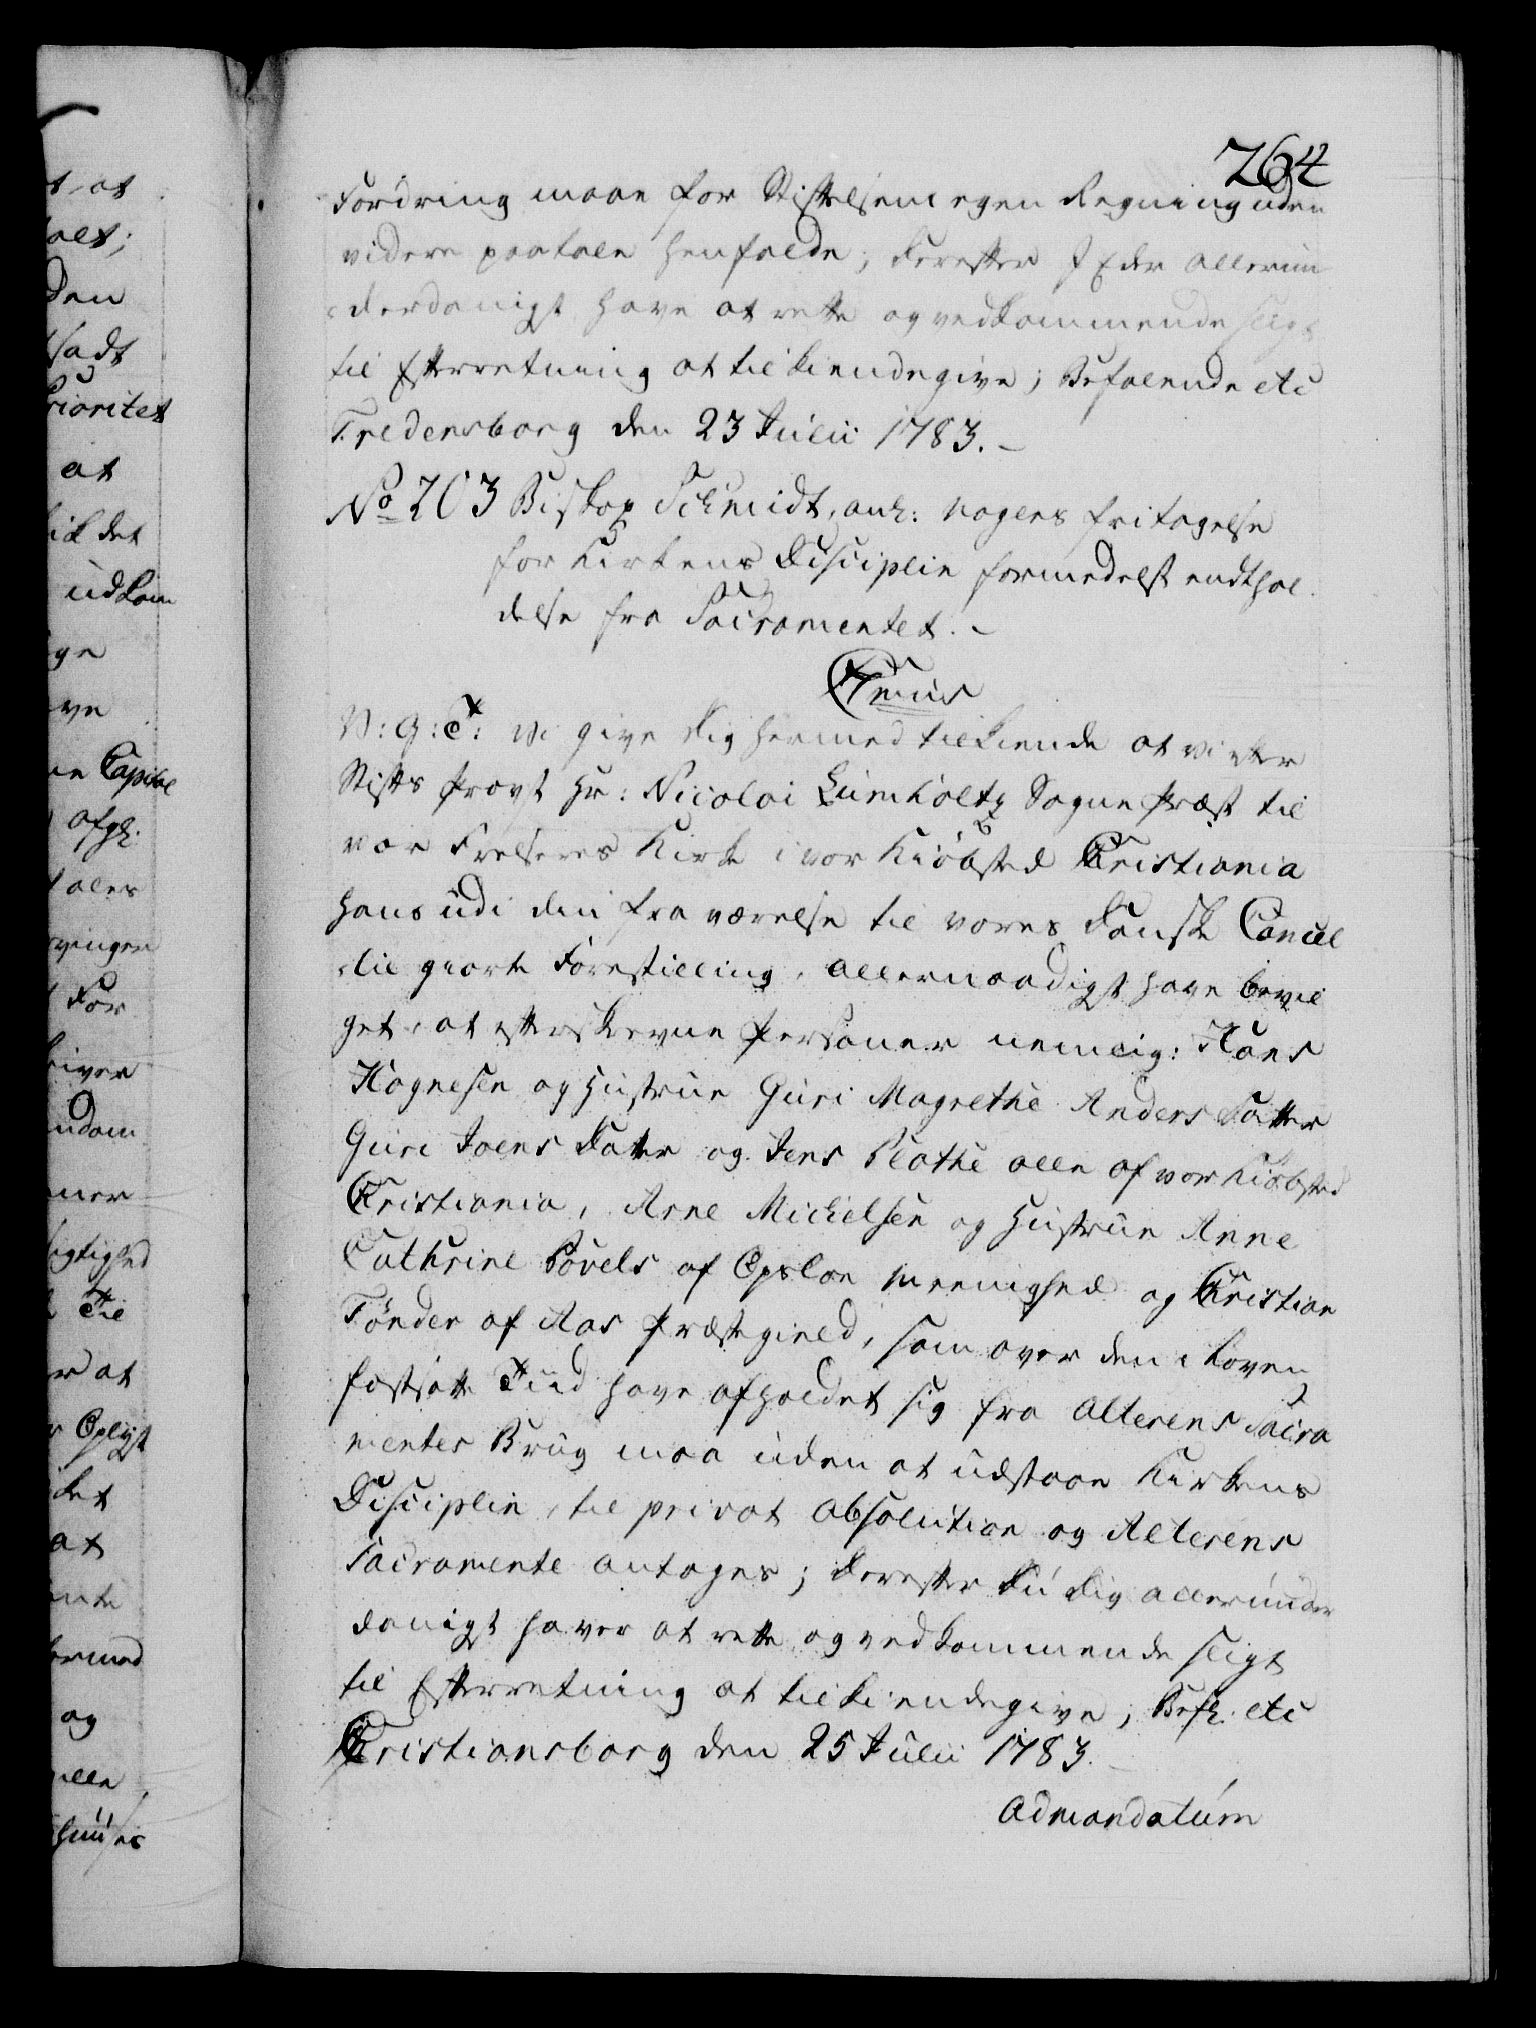 264
Fordring maae for Stiftelsens egen Regning uden
videre paatale henfalde; derefter I Eder allerun¬
derdanigst have at rette og vedkommende sligt
til Efterretning at tilkiendegive; Befalende etc
Fredensborg den 23 Julii 1783. –
No 203 Biskop Schmidt, anl: nogens fritagelse
for Kirkens Disciplin formedelst endthol¬
delse fra Sacramentet. –
V: G: T: Vi give dig hermed tilkiende at vi efter
Stifts Provst Hr: Nicolai Lumholtz Sogne Præst til
vor Frelseres Kirke i vor Kiöbsted Christiania
hans udi din fra værelse til vores Danske Cancel
-lie giorte Forestilling, allernaadigst have bevil
get, at efterskrevne Personer nemlig: Hans
Hognesen og Hustrue Guri Magrethe Anders Datter
Guri Joens Datter og Jens Plathe alle af vor Kiöbsted
Christiania, Arne Michelsen og Hustrue Anne
Cathrine Povels af Opsloe Meenighed og Christian
Tönder af Aas Præstegield, som over den i Loven
fastsatte Tiid have afholdet sig fra Alterens Sacra
mentes Brug maa uden at udstaae Kirkens
Disciplin, til privat Absolution og Alterens
Sacramente antages; derefter du dig allerunder
danigst haver at rette og vedkommende sligt
til Efterretning at tilkiendegive; Befl: etc
Christiansborg den 25 Julii 1783. –
Admandatum
t at
alt;
den
sadt
Prioritet
at
det
udkom
ge
ve
Capital
afgl.
tales
For
ndom
igtighed
Til
r at
Oplyst
ket
at
ermed
og